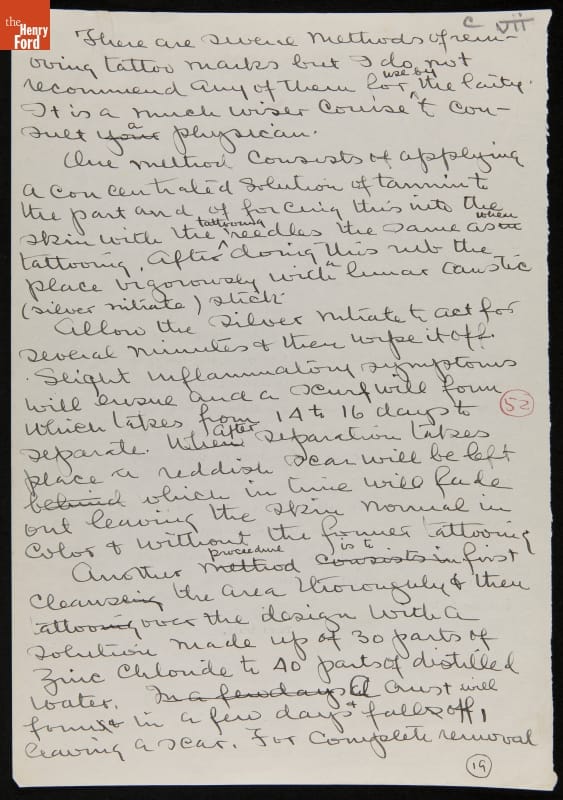 the Henry Ford
C VII
There are severe methods of rem-
oving tattoo marks but I do not
recommend any of them for use by the laity.
It is a much wiser course to con-
sult your a physican.
One method consists of applying
a concentrated solution of tannin to
the part and of forcing this into the
skin with the tattooing needles the same as in when
tattooing. After doing this rub the
place vigorously with a lunar caustic
(silver nitrate) stick.
Allow the silver nitrate to act for
several minutes & then wipe it off.
Slight inflammatory symptoms
will ensue and a scurf will form
which takes from 14 to 16 days to
52
separate. When after separation takes
place a reddish scar will be left
behind which in time will fade
out leaving the skin normal in
color & without the former tattooing
Another method procedure consists in is to first
cleansing the area thoroughly & then
tattooing over the design with a
solution made up of 30 parts of
Zinc Chloride to 40 parts of distilled
water. In a few days a crust will
form & in a few days falls off,
leaving a scar. For complete removal
19